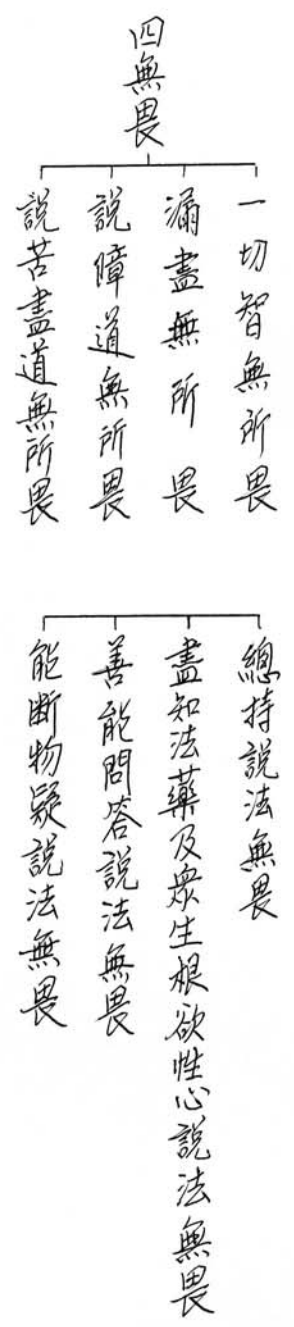 四無畏
一切智無所畏
漏盡無所畏
說障道無所畏
說苦盡道無所畏
總持說法無畏
盡知法藥及眾生根欲性心說法無畏
善能問答說法無畏
能斷物疑說法無畏